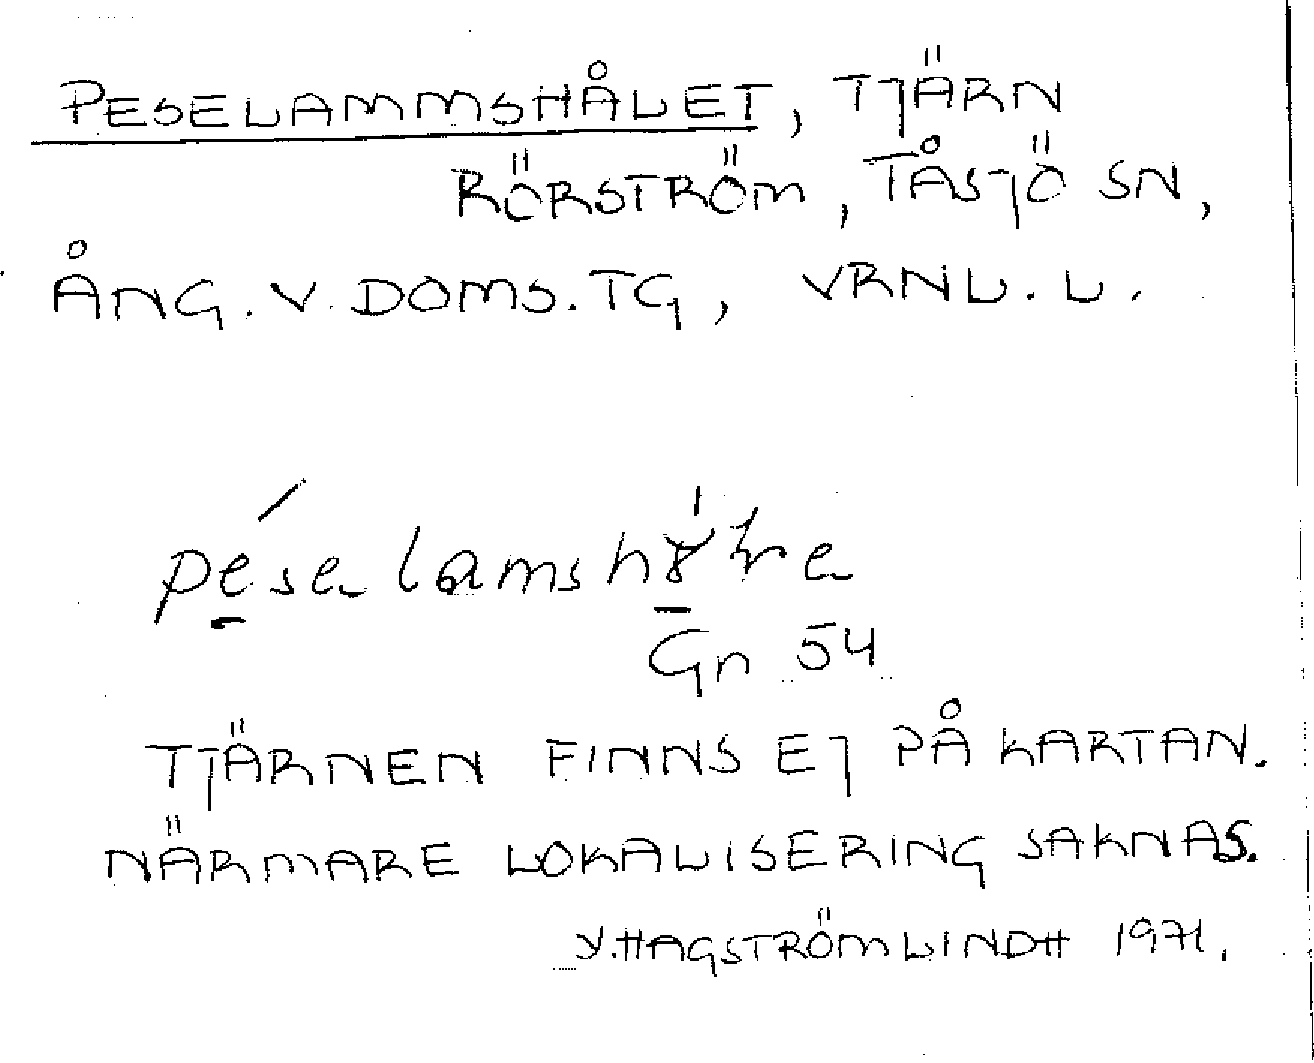 PESELAMMSHÅLET, TJÄRN
RÖRSTRÖM, TÅSJÖ SN,
ÅNG. V. DOMS. TG, VRNL. L.
Gn 54
TJÄRNEN FINNS EJ PÅ KARTAN.
NÄRMARE LOKALISERING SAKNAS.
Y. HAGSTRÖM LINDH 1971.